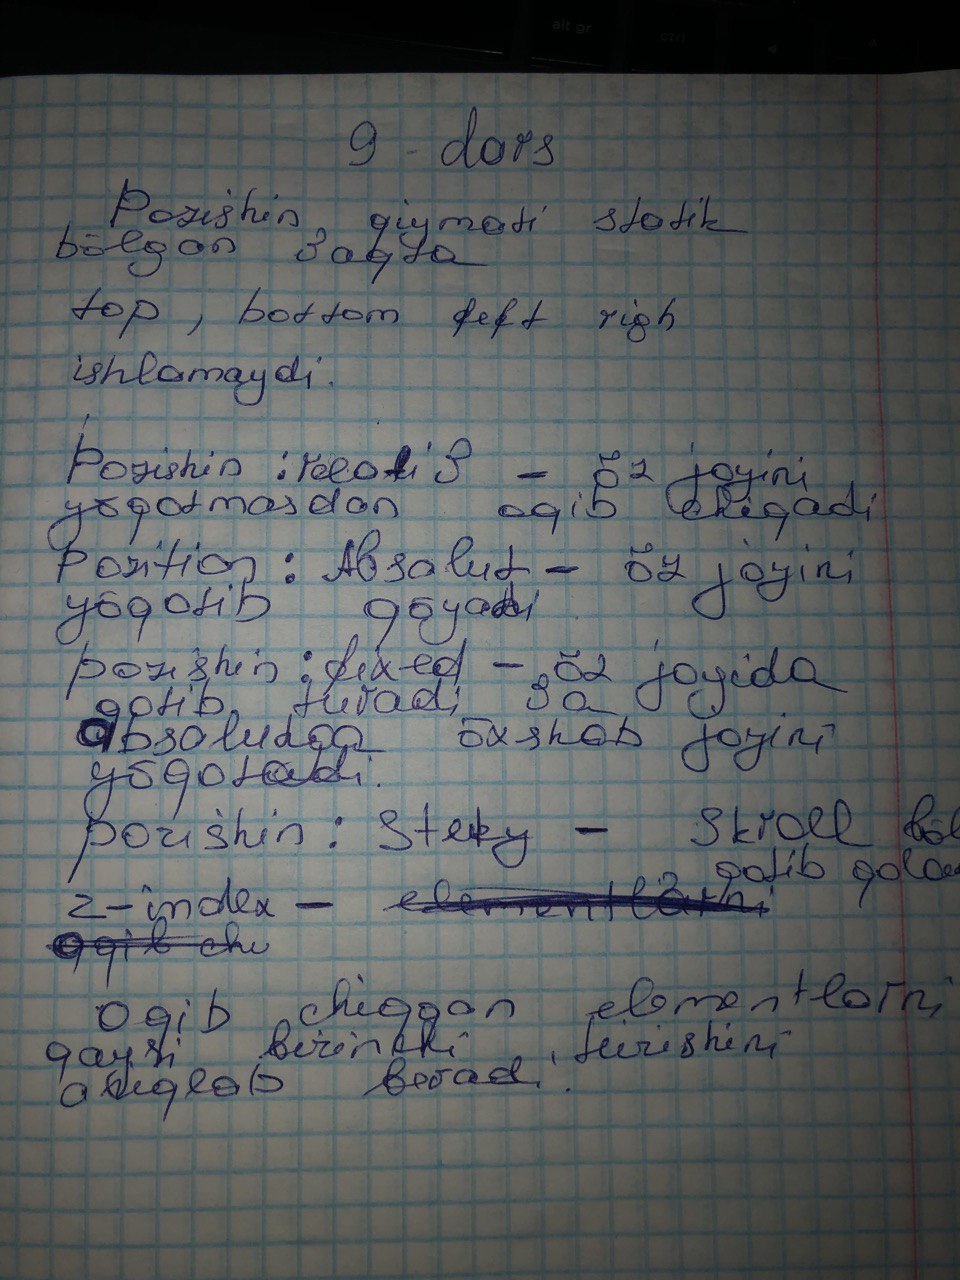 9 - dars
Pozishin qiymati statik
bōlgan vaqta
top, bottom left righ
ishlamaydi.
Pozishin : relativ - ōz joyini
yōqotmasdan oqib chiqadi
Pozition : Absalut - ōz joyini
yōqotib qōyadi
pozishin : fixed - ōz joyida
qotib turadi va
absalutga ōxshab joyini
yōqotadi.
pozishin : Steky - Skroll bōl
qotib qolad
z-index - elementlarni
oqib chi
Oqib chiqqan elementlarni
qaysi birinchi turishini
aniqlab beradi.